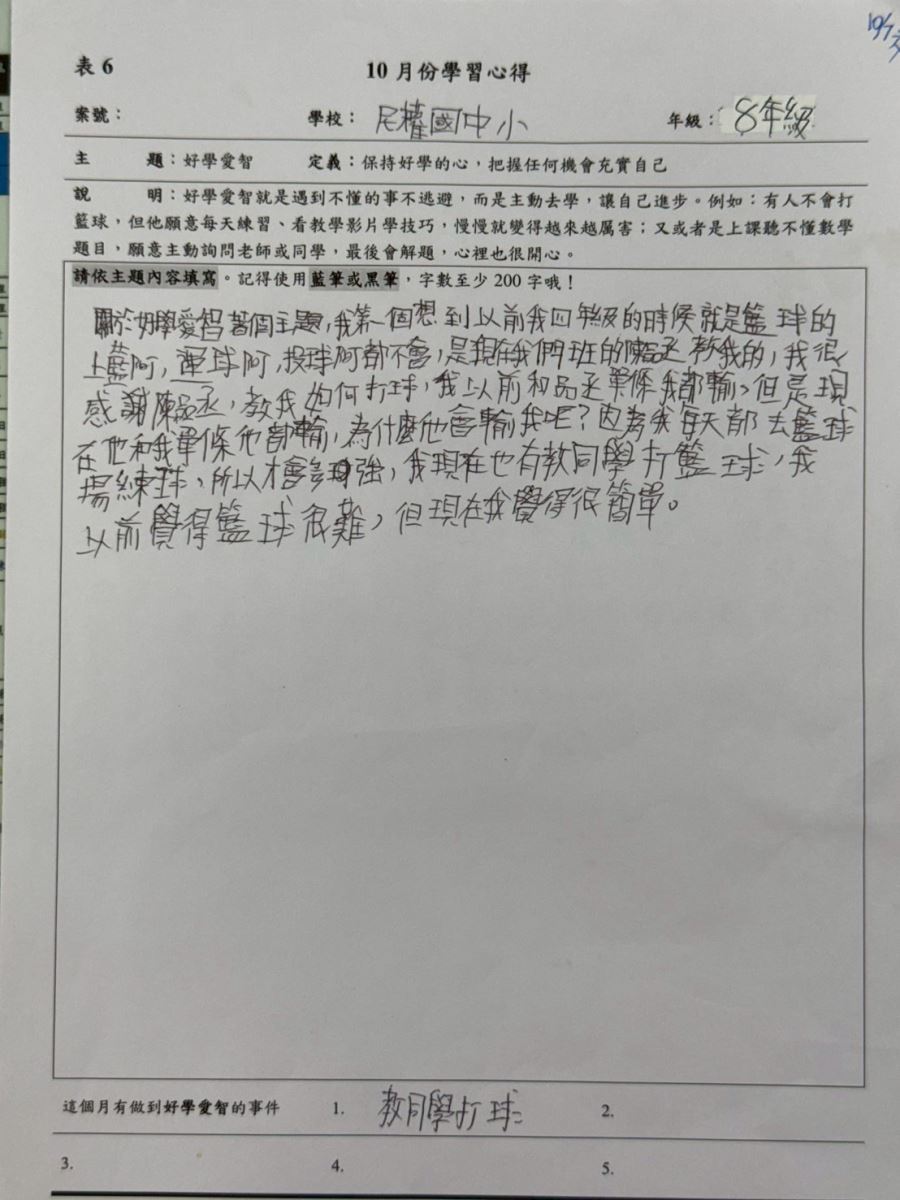 10/7
表 6
10 月份學習心得
案號： 學校： 民權國中小 年級： 8年級
主 題：好學愛智 定義：保持好學的心，把握任何機會充實自己
說 明：好學愛智就是遇到不懂的事不逃避，而是主動去學，讓自己進步。例如：有人不會打
籃球，但他願意每天練習、看教學影片學技巧，慢慢就變得越來越厲害；又或者是上課聽不懂數學
題目，願意主動詢問老師或同學，最後會解題，心裡也很開心。
請依主題內容填寫。記得使用藍筆或黑筆，字數至少 200 字哦！
關於好學愛智著個主題，我第一個想到以前我四年級的時候就是籃球的
上藍阿，運球阿，投球阿都不會，是現在我們班的陳品丞教我的，我很
感謝陳品丞，教我如何打球，我以前和品丞單條我都輸，但是現
在他和我單條他都輸，為什麼他會輸我呢？因為我每天都去籃球
場練球，所以才會變強，我現在也有教同學打籃球，我
以前覺得籃球很難，但現在我覺得很簡單。
這個月有做到好學愛智的事件 1. 教同學打球 2.
3. 4. 5.